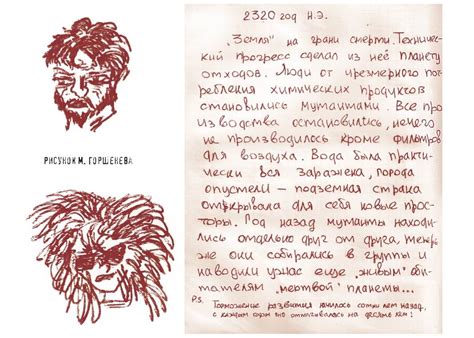 РИСУНОК М. ГОРШЕНЕВА
2320 год Н.Э.
„Земля" на грани смерти. Техничес-
кий прогресс сделал из неё планету
отходов. Люди от чрезмерного пот-
ребления химических продуктов
становились мутантами. Все про
изводства остановились, ничего
не производилось кроме фильтров
для воздуха. Вода была практи-
чески вся заражена, города
опустели – подземная страна
открывала для себя новые прос-
торы. Год назад мутанты находи-
лись отдельно друг от друга, теперь
же они собирались в группы и
наводили ужас еще „живым" оби-
тателям „мертвой" планеты...
P.S. Торможение развития началось сотни лет назад,
с каждым годом это откатывалась на десять лет!